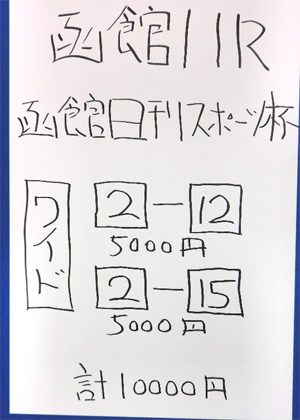 函館11R
函館日刊スポーツ杯
ワイド
2-12
5000円
2-15
5000円
計10000円